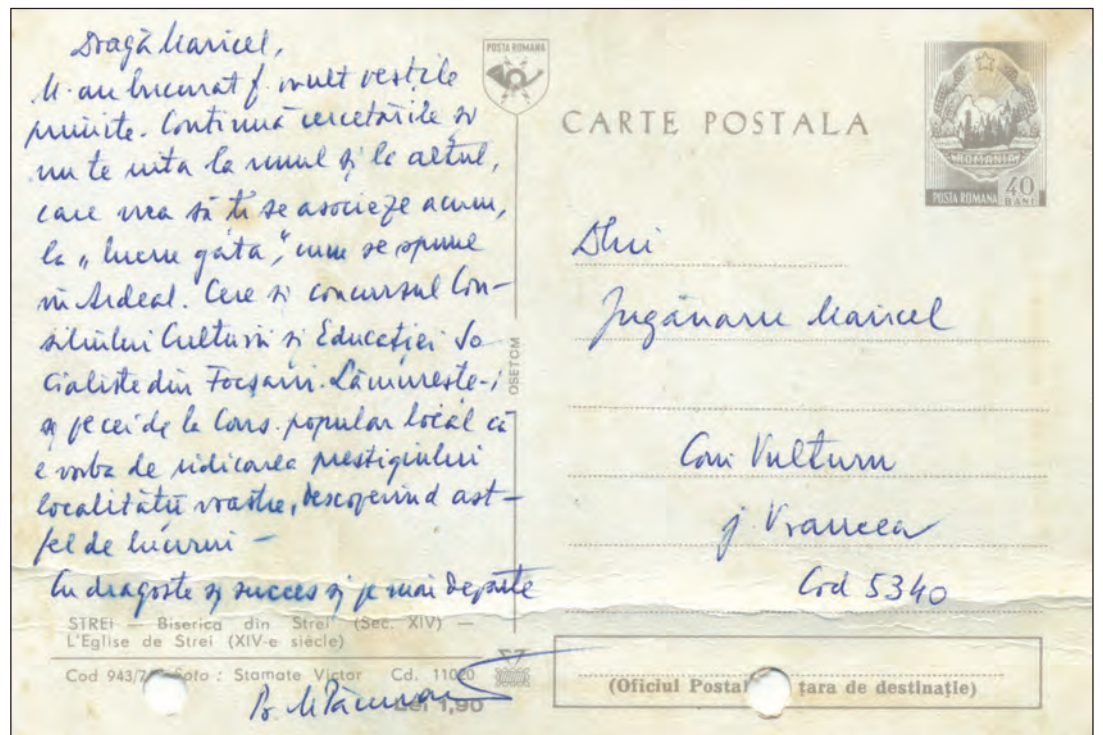 Dragă Maricel,
M-au bucurat f. mult veștile
primite. Continuă cercetările și
nu te uita la unul și la altul,
care vrea să ți se asocieze acum,
la „lucru gata", cum se spune
în Ardeal. Cere și concursul Con-
siliului Culturii și Educației So-
cialiste din Focșani. Lămurește-i
și pe cei de la Cons. popular local că
e vorba de ridicarea prestigiului
localității voastre, descoperind ast-
fel de lucruri –
Cu dragoste și succes și pe mai departe
STREI — Biserica din Strei (Sec. XIV) —
L'Eglise de Strei (XIV-e siècle)
Cod 943/7 Foto : Stamate Victor Cd. 11020
Lei 1,90
OSETCM
POSTA ROMANA
CARTE POSTALA
ROMANIA
POSTA ROMANA 40 BANI
Dlui
Jugănaru Maricel
Com Vulturu
j. Vrancea
Cod 5340
(Oficiul Postal țara de destinație)